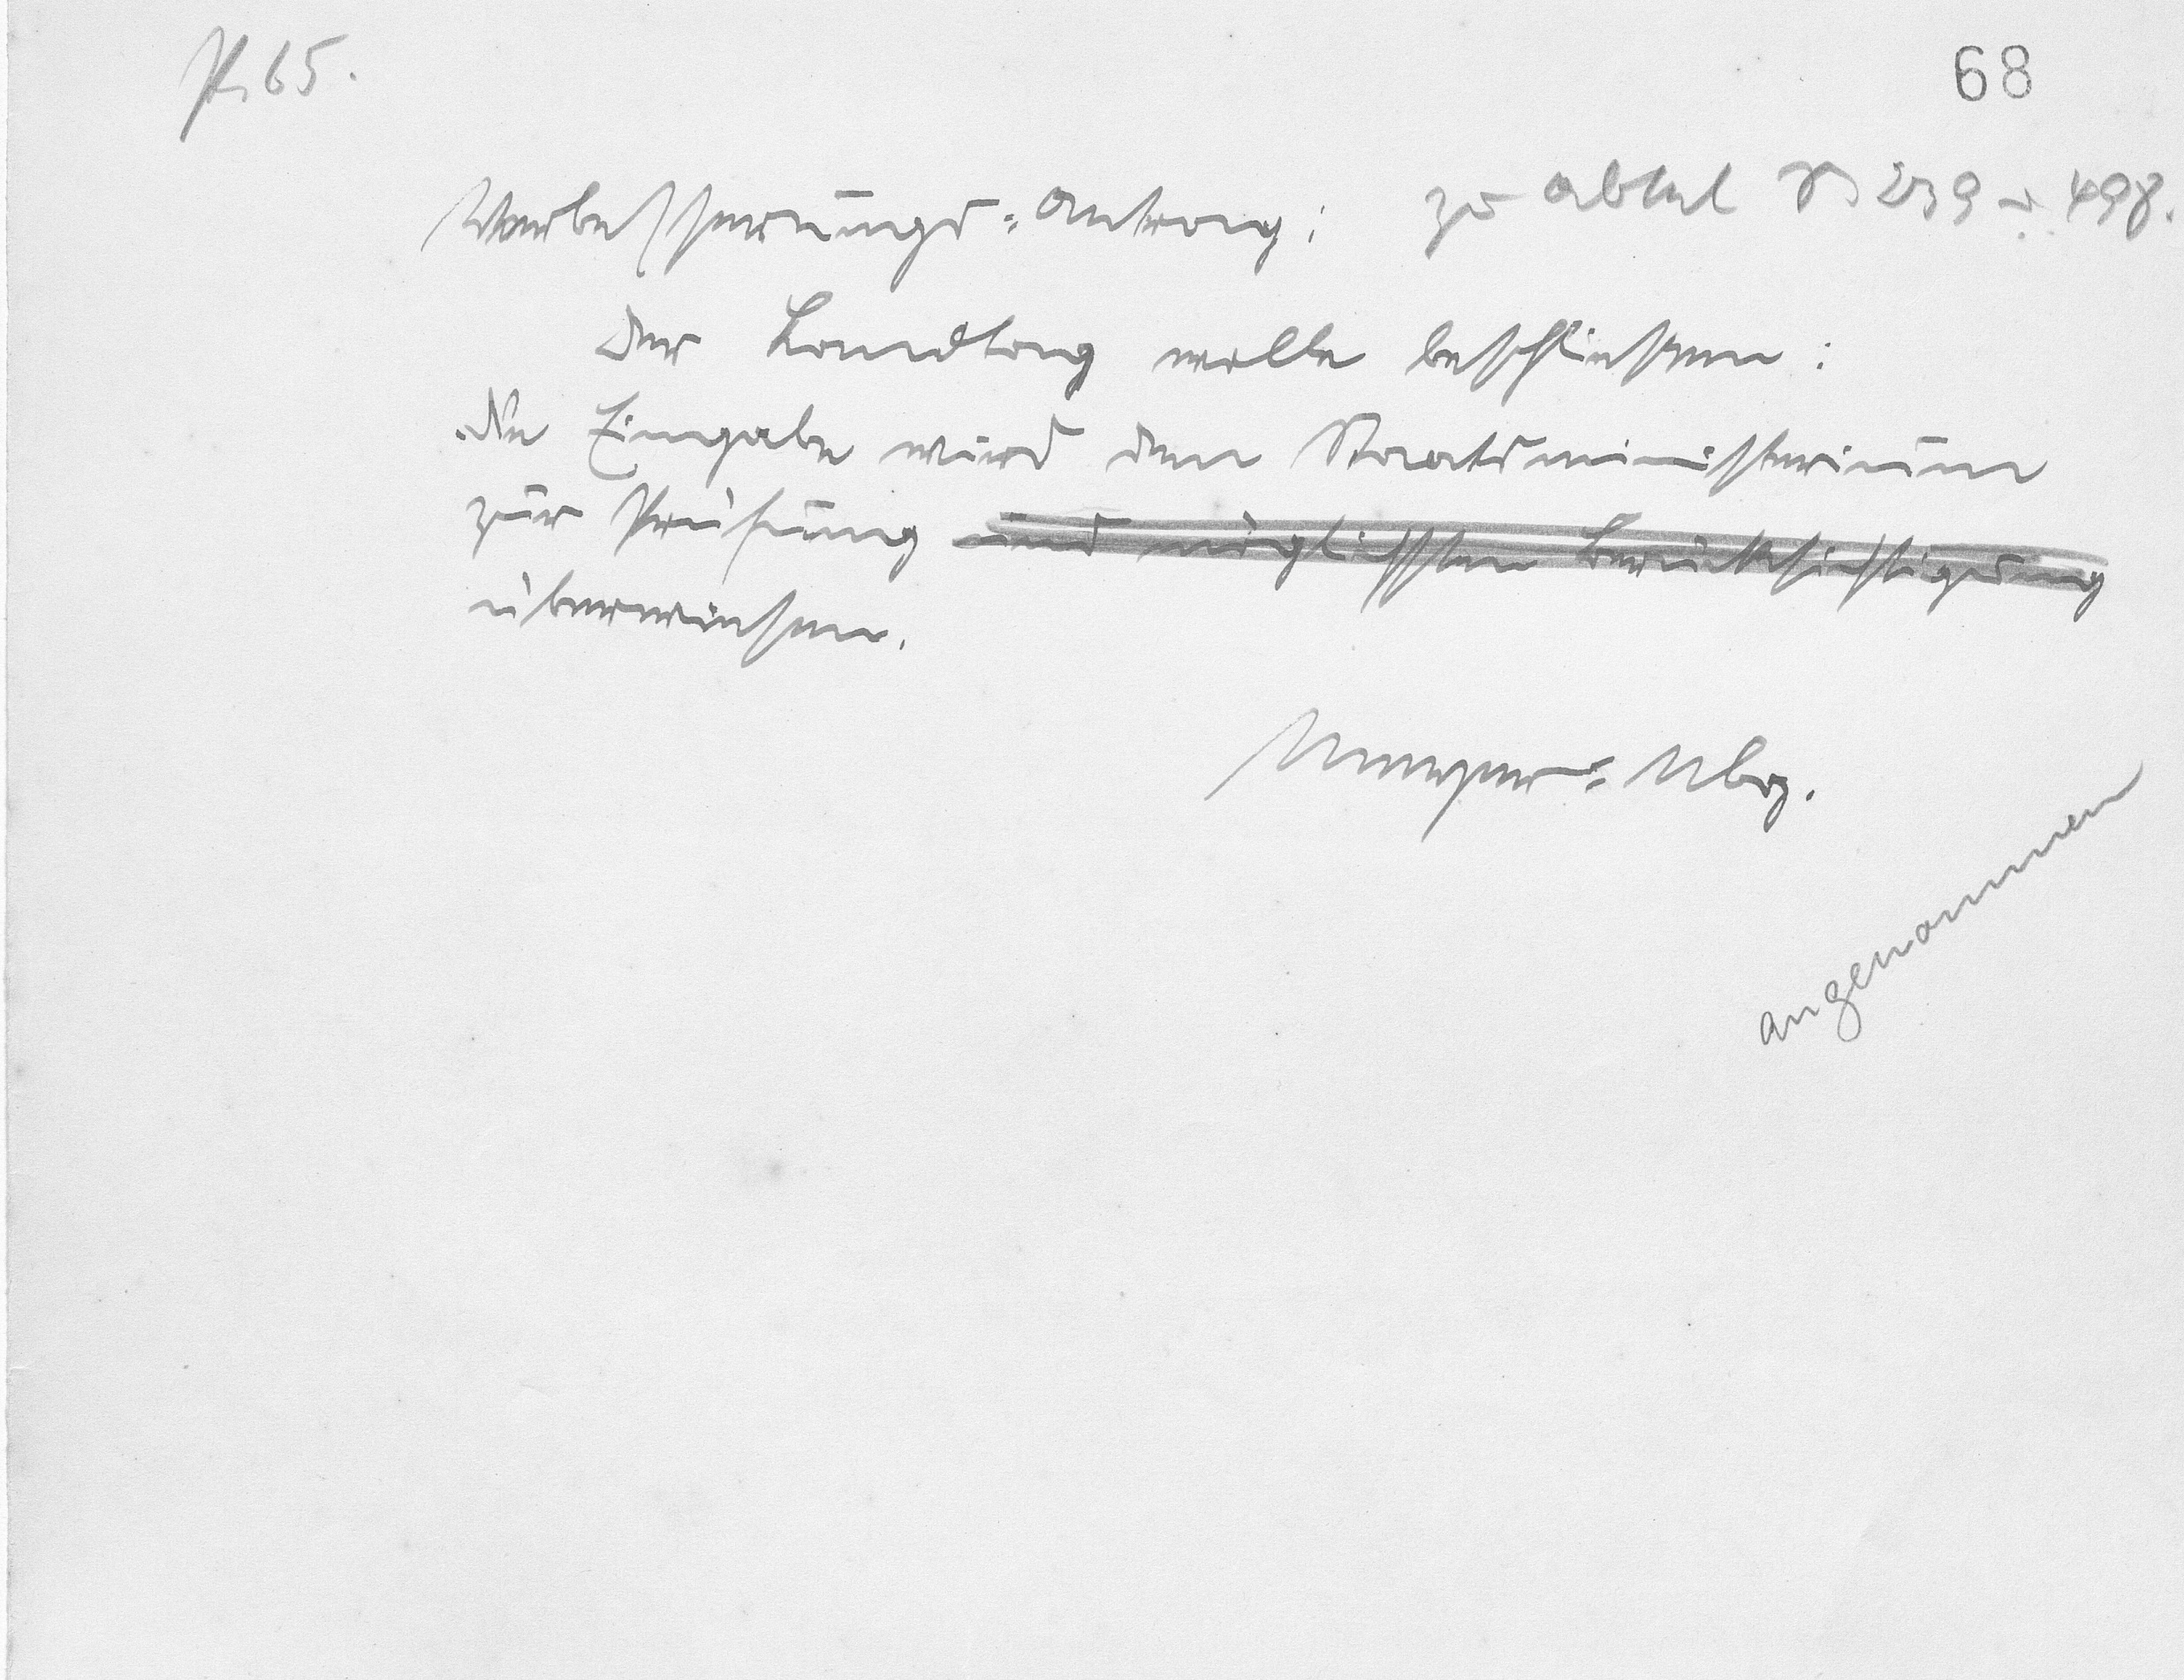 68
Verbesserungs-Antrag: zu
Der Landtag wolle beschließen:
Die Eingabe wird dem Staatsministerium
zur Prüfung und möglichsten Berücksichtigung
überwiesen.
angenommen